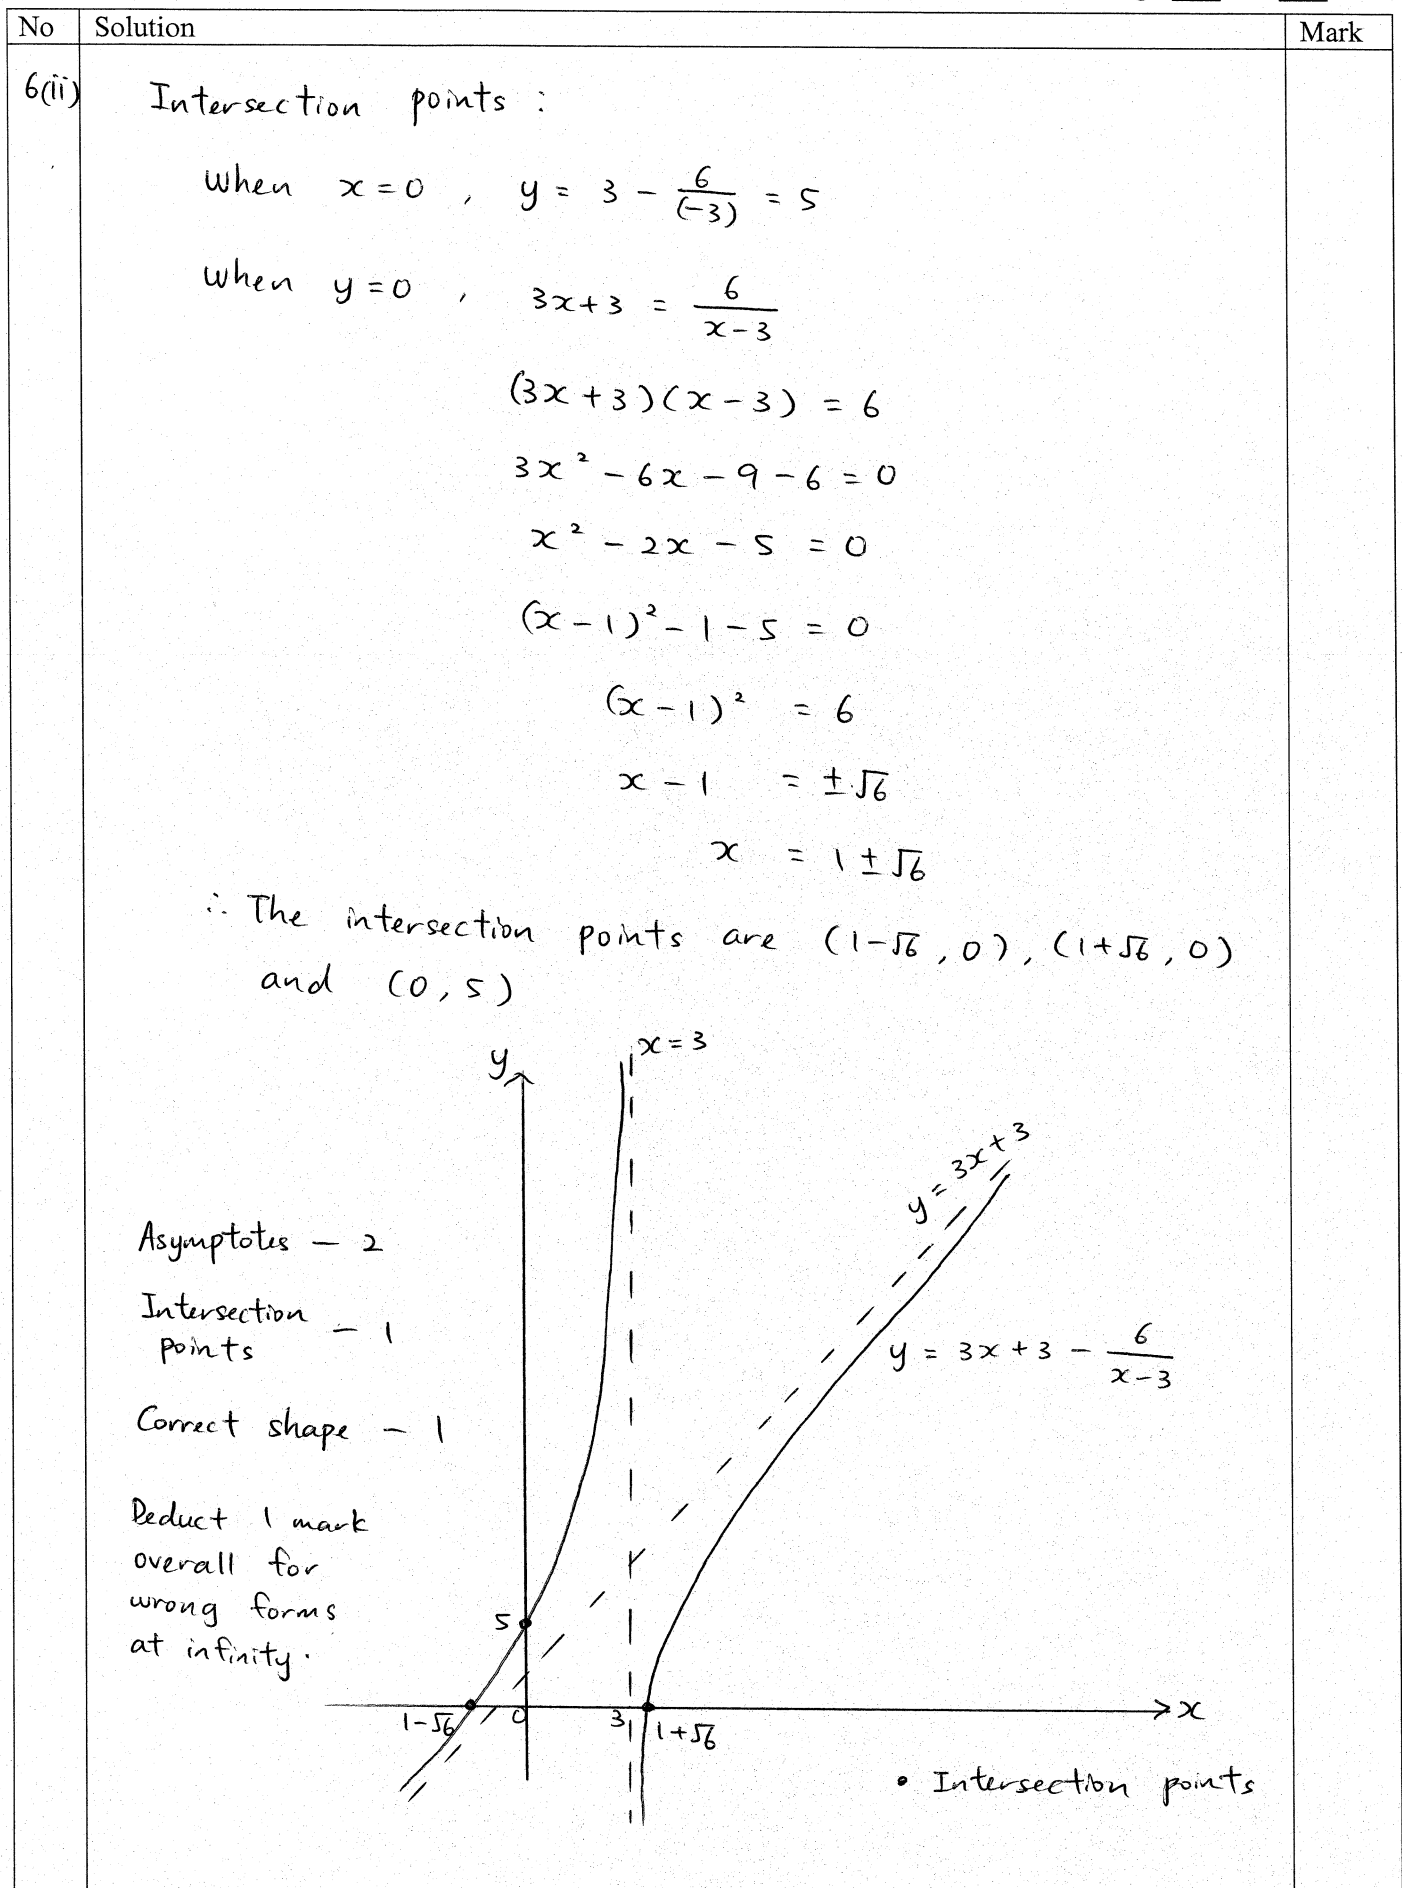 No Solution Mark
6(ii) Intersection points :
When x = 0 , y = 3 - 6/(-3) = 5
When y = 0 , 3x + 3 = 6/(x - 3)
(3x + 3)(x - 3) = 6
3x² - 6x - 9 - 6 = 0
x² - 2x - 5 = 0
(x - 1)² - 1 - 5 = 0
(x - 1)² = 6
x - 1 = ±√6
x = 1 ± √6
∴ The intersection points are (1-√6 , 0), (1+√6 , 0)
and (0, 5)
y
x = 3
y = 3x + 3
Asymptotes - 2
Intersection
points - 1
y = 3x + 3 - 6/(x - 3)
Correct shape - 1
Deduct 1 mark
overall for
wrong forms
at infinity.
5
1-√6 0 3 1+√6 x
• Intersection points